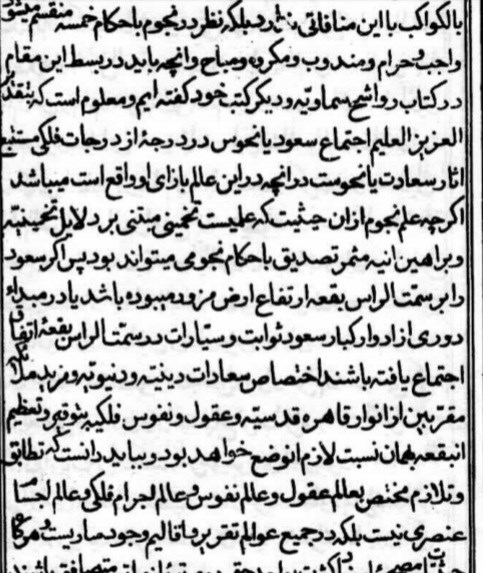 بالکواکب با این منافاتی ندارد بلکه نظر در نجوم باحکام خمسه منقسم میشود
واجب و حرام و مندوب و مکروه و مباح و انچه باید در بسط این مقام
در کتاب رواشح سماویّه و دیگر کتب خود گفته‌ایم و معلوم است که بتقدیر
العزیز العلیم اجتماع سعود یا نحوس در درجهٔ از درجات فلکی مستتبع
اثار سعادت یا نحوست در انچه در این عالم بازای او واقع است میباشد
اگرچه علم نجوم از ان حیثیت که علیست تخمینی مبتنی بر دلایل تخمینیّه
و براهین انیه مثمر تصدیق باحکام نجومی میتواند بود پس اگر سعود
را بر سمت الراس بقعه ارتفاع ارض مزور میبوده باشد یا در مبداء
دوری از ادوار کبار سعود ثوابت و سیّارات در سمت الراس بقعهٔ اتفاق
اجتماع یافته باشند اختصاص سعادات دینیّه و دنیویّه و مزید ملائکه
مقرّبین از انوار قاهره قدسیّه و عقول و نفوس فلکیه بتوقیر و تعظیم
انبقعه بهمان نسبت لازم انوضع خواهد بود و بباید دانست که تطابق
و تلازم مختص بعالم عقول و عالم نفوس و عالم اجرام فلکی و عالم اجسام
عنصری نیست بلکه در جمیع عوالم تقریر و اقالیم وجود ساریست و هرگاه